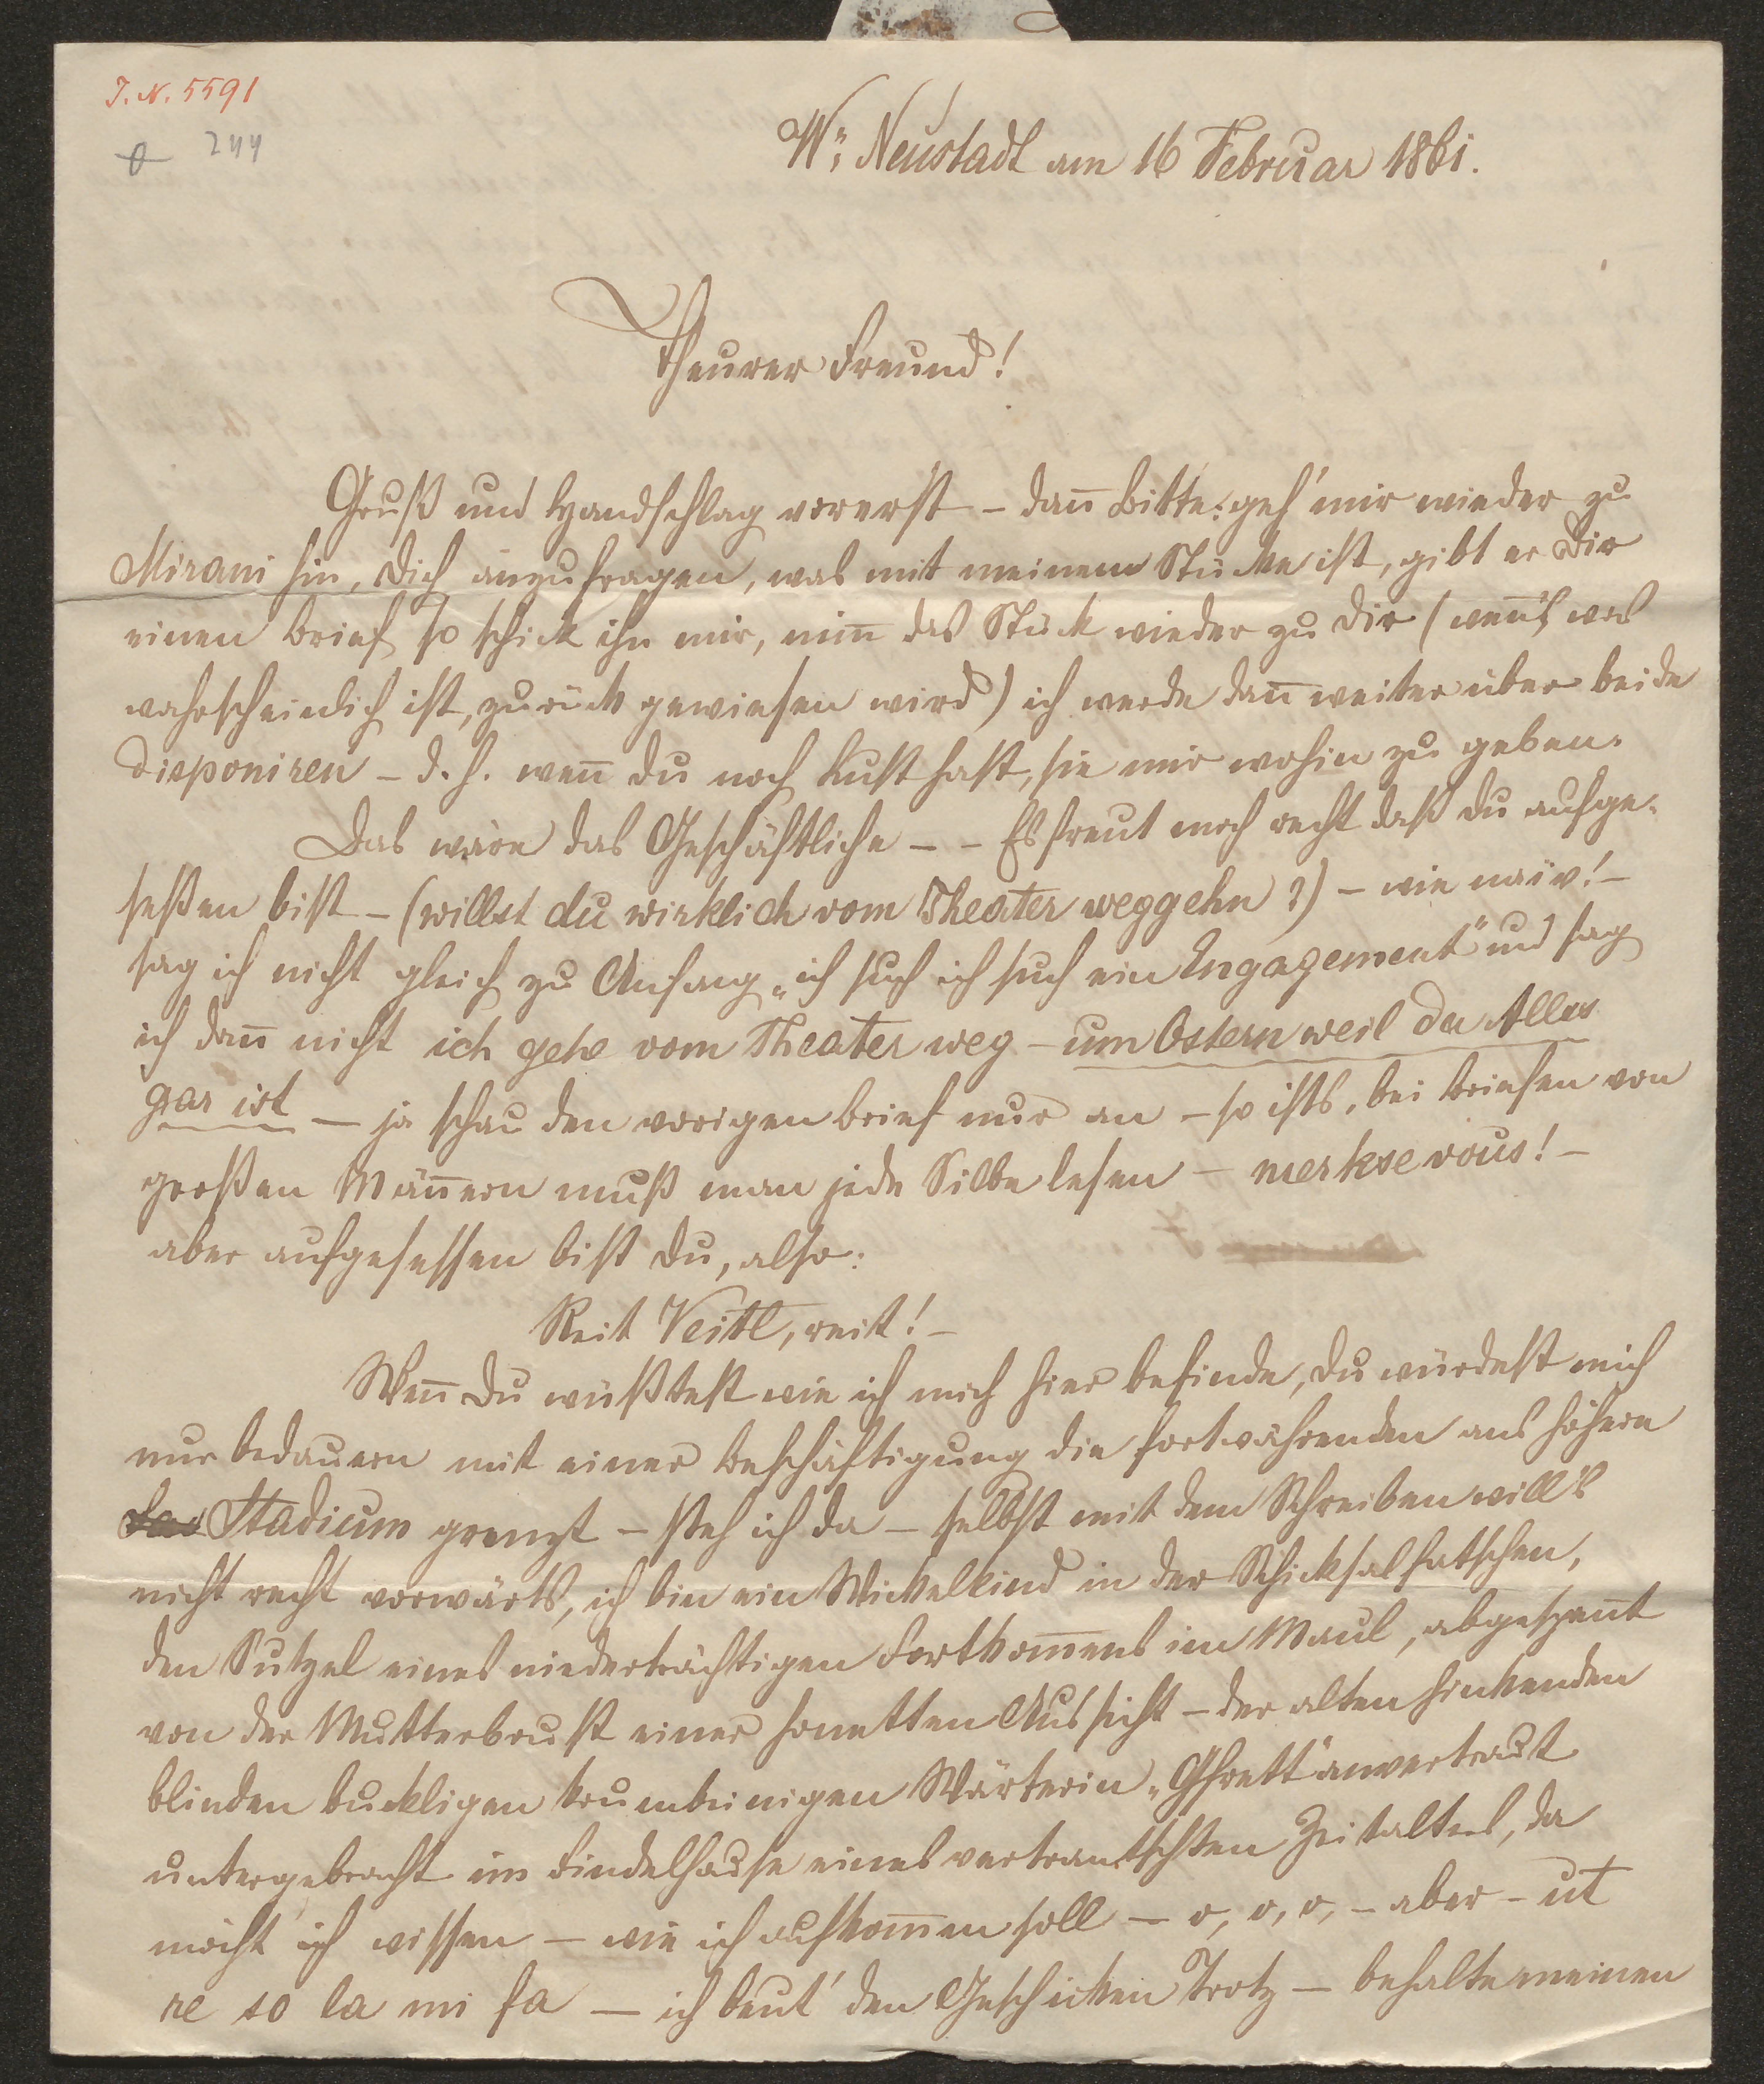 J. N. 5591
244
Wr. Neustadt am 16 Februar 1861.
Theurer Freund!
Gruß und Handschlag vorerst – dan̄ Bitte: geh' mir wieder zu
Mirani hin, dich anzufragen, was mit meinem Stücke ist, gibt er Dir
einen Brief so schick ihn mir, nim̄ das Stück wieder zu dir (wen̄'s was
wahrscheinlich ist, zurück gewiesen wird) ich werde dan̄ weiter über beide
disponiren – d. h. wen̄ du noch Lust hast, sie mir wohin zu geben.
Das wäre das Geschäftliche – – Es freut mich recht daß du aufge-
seßen bist – (willst du wirklich vom Theater weggehn?) – wie naiv! –
sag ich nicht gleich zu Anfang „ich such ich such ein Engagement" und sag
ich dan̄ nicht ich gehe vom Theater weg – um Ostern weil da Alles
gar ist – ja schau den vorigen Brief nur an – so ists, bei Briefen von
großen Män̄ern muß man jede Silbe lesen – merkse vous! –
aber aufgesessen bist du, also:
Reit Veitl, reit! –
Wen̄ du wüßtest wie ich mich hier befinde, du würdest mich
nur bedauern mit einer Beschäftigung die fortwährenden ans höhere
Stadium grenzt – steh ich da – selbst mit dem Schreiben will's
nicht recht vorwärts, ich bin ein Wickelkind in der Schicksalfatschen,
den Sutzel eines niederträchtigen Fortkom̄ens im Maul, abgespan̄t
von der Mutterbrust einer honetten Aussicht – der alten hinkenden
blinden buckligen krum̄beinigen Wärterin „Gfrett" anvertraut
untergebracht im Findelhause eines vertrantschten Zeitalters, da
möcht ich wissen – wie ich aufkom̄en soll – o, o, o, – aber – ut
re so la mi fa – ich beut' den Geschicken Trotz – behalte meinen